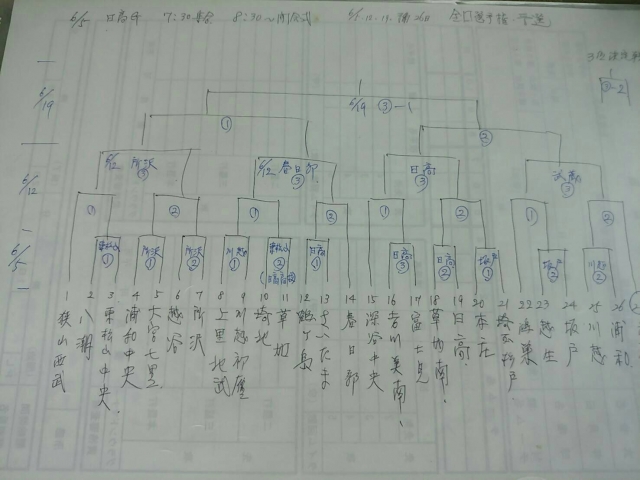 6/5 日高 7:30集合 8:30~開会式
6/5. 12. 19. 予 26日 全日選手権 予選
3位決定戦
③-2
6/19
6/19 ③-1
① ②
6/12
6/12 所沢 ③
6/12 春日部 ③
日高 ③
③
① ② ① ② ① ② ① ②
6/5
東松山 ①
所沢 ①
所沢 ②
川越 ①
東松山 ②
日高 ①
日高 ③
日高 ②
坂戸 ①
坂戸 ②
川越 ②
1 狭山西武
2 八潮
3 東松山中央
4 浦和中央
5 大宮七里
6 越谷
7 所沢
8 上里地武
9 川越初雁
10 埼北
11 草加
12 鶴ヶ島
13 さいたま
14 春日部
15 深谷中央
16 吉川美南
17 富士見
18 草加南
19 日高
20 本庄
21 埼玉杉戸
22
23 越生
24 坂戸
25 川越
26 浦和